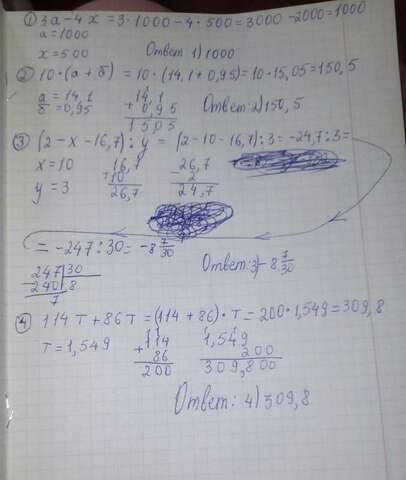 ① 3а-4х = 3·1000-4·500=3000-2000=1000
а=1000
х=500 Ответ 1) 1000
② 10·(а+б) = 10·(14,1+0,95)=10·15,05=150,5
а=14,1 14,1
б=0,95 +0,95 Ответ: 2) 150,5
1505
③ (2-х-16,7):у = (2-10-16,7):3=-24,7:3=
х=10 16,7 -26,7
у=3 +10 2
26,7 24,7
= -247:30= -8 7/30
247|30 Ответ: 3) -8 7/30
240|8
7
④ 114т+86т=(114+86)·т=200·1,549=309,8
т=1,549 114 1,549
+86 200
200 309,800
Ответ: 4) 309,8